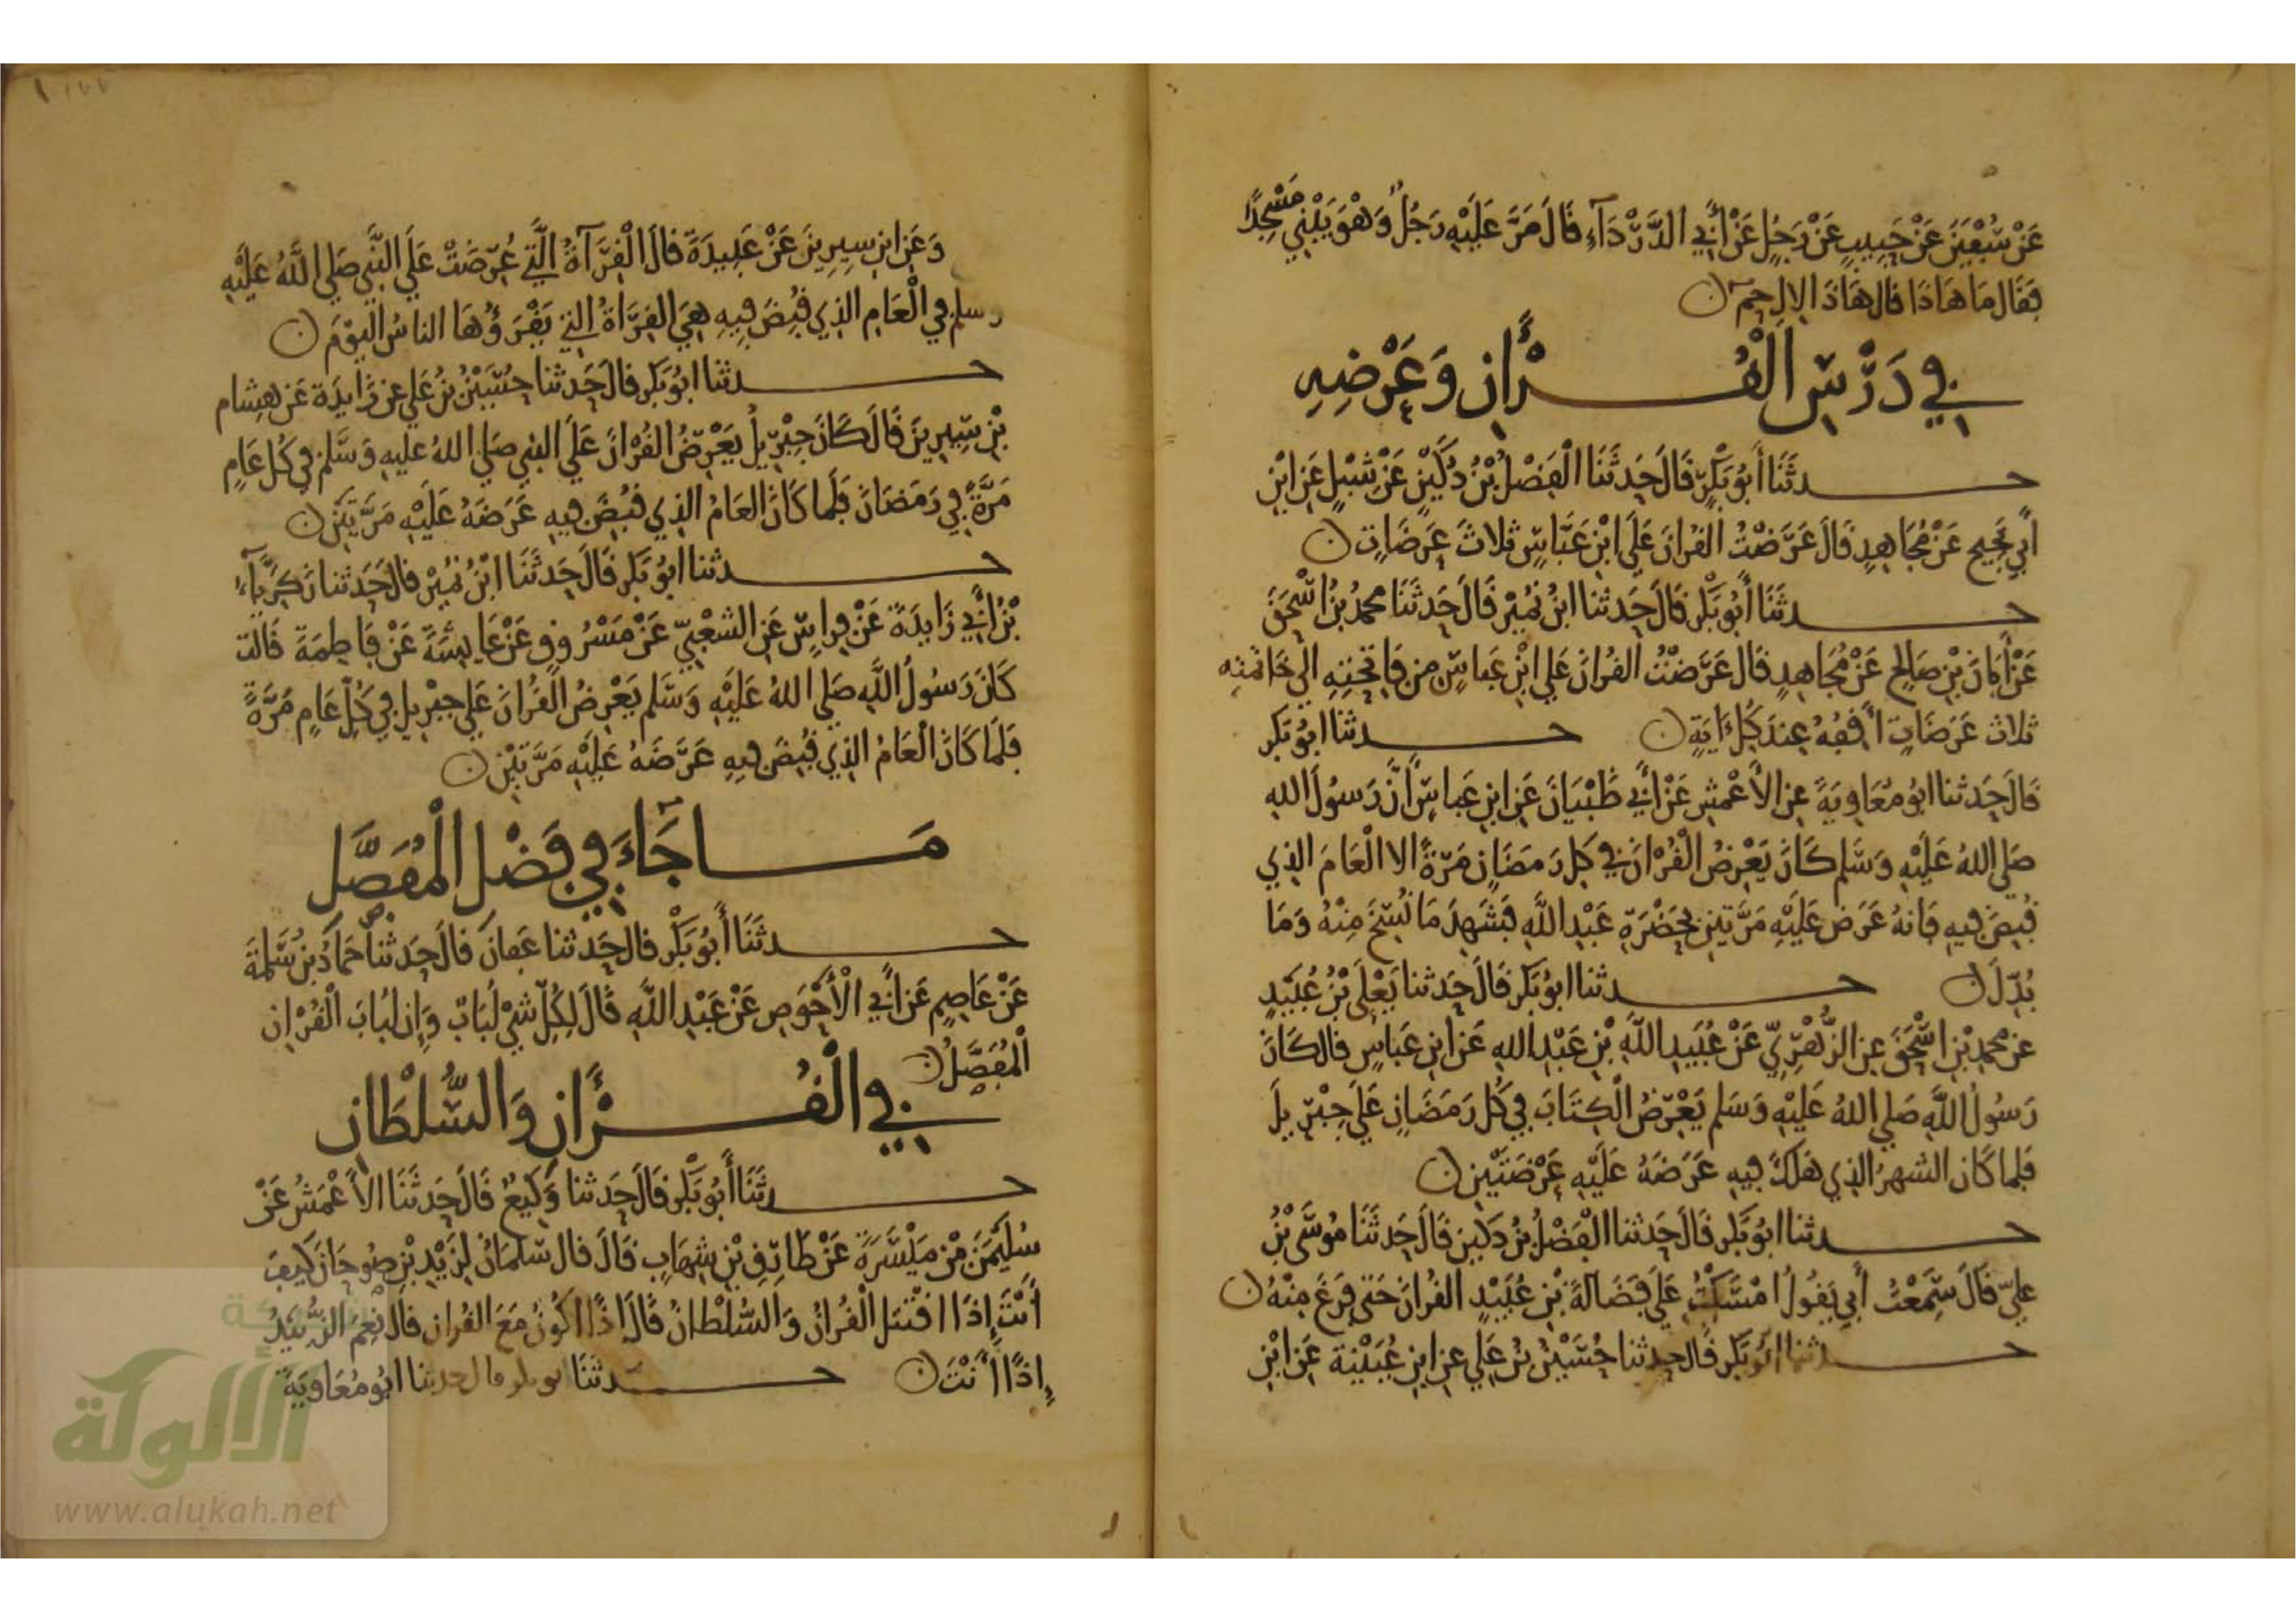 عَنْ سُفْيَنَ عَنْ حَبِيبٍ عَنْ رَجُلٍ عَنْ أَبِي الدَّرْدَآءِ قَالَ مَرَّ عَلَيْهِ رَجُلٌ وَهْوَ يَبْنِي مَسْجِدًا
فَقَالَ مَا هَاذَا قَالَ هَاذَ الِالِ حم
فِي دَرْسِ الْقُرْأَنِ وَعَرْضِهِ
حدثَنَا أَبُو بَكْرٍ قَالَ حَدثَنَا الْفَضْلُ بْنُ دُكَيْنٍ عَنْ شِبْلٍ عَنِ ابْنِ
أَبِي نَجِيح عَنْ مُجَاهِدٍ قَالَ عَرَضْتُ القُرانَ عَلَى ابْنِ عَبَّاسٍ ثلاثَ عَرَضَاتٍ
حدثَنَا أَبُو بَكْر قَالَ حَدثنا ابْنُ نُمَيْرٍ قَالَ حَدثَنَا محمدُ بْنُ اسْحَقَ
عَنْ أَبَانَ بْنِ صَالِح عَنْ مُجَاهِدٍ قَالَ عَرَضْتُ القُرانَ عَلي ابْنِ عَباسٍ من فَاتِحَتِهِ الَي خَاتمتِهِ
ثلاث عَرَضَاتٍ أَقِفُهُ عِندَ كُلِّ ءَايَةٍ حدثنا ابُو بَكر
قَالَ حَدثنا ابُو مُعَاوِيَةَ عنِ الأَعْمشِ عَنْ أَبِي ظَبْيَانَ عَنِ ابنِ عَباسٍ أَنَّ رَسُولَ اللهِ
صَلى اللهُ عَلَيْهِ وَسَّلم كَانَ يَعْرِضُ الْقُرْانَ في كلِ رَمَضَانٍ مَرّةً الا الْعَامَ الذِي
قُبِضَ فِيهِ فَانهُ عَرَض عَلَيْهِ مَرَّتينِ بِحَضْرَةِ عَبْدِ اللَّهِ فَشَهِدَ مَا نُسِخَ مِنْهُ وَمَا
بُدِّلَ حدثنا ابُو بَكر قَالَ حَدثنا يَعْلَي بْنُ عُبَيْدٍ
عن محمدِ بْنِ اسْحَقَ عنِ الزُّهْرِيِّ عَنْ عُبَيدِ اللَّهِ بْنِ عَبْدِ اللهِ عَنِ ابنِ عَبَاسٍ قَالَ كَانَ
رَسُولُ اللَّهِ صَلى اللهُ عَلَيْهِ وَسَلم يَعْرِضُ الْكِتَابَ فِي كُل رَمَضَانٍ عَلَي جِبْرِيلَ
فَلما كَان الشهرُ الذِي هَلَكَ فِيهِ عَرَضَهُ عَلَيْهِ عَرْضَتَيْنِ
حدثنا ابُو بَكر قَالَ حَدثنا الْفَضْلُ بْنُ دُكَين قَالَ حَدثَنَا مُوسَى بْنُ
عليّ قَالَ سَمِعْتُ أَبِي يَقُولُ امْسَكْتُ عَلَي فَضَالَةَ بْنِ عُبَيْدٍ القُرانَ حَتى فَرغَ مِنْهُ
حدثنا ابُو بَكر قَالَ حدثنا حُسَيْنُ بْنُ عَلي عنِ ابنِ عُيَيْنة عَنِ ابْنِ
وَعَنِ ابنِ سِيرِينَ عَنْ عَبِيدَةَ قالَ الْقِرَآةُ الَّتِي عُرِضَتْ عَلَي النَّبِي صَلي اللَّهُ عَلَيْهِ
وسلم فِي الْعَامِ الذِي قُبِضَ فِيهِ هِيَ القِرَاةُ التِي يَقْرَؤُهَا الناسُ الْيَوْمَ
حدثنا ابُو بَكر قالَ حَدثنا حُسَيْنُ بْنُ عَلي عن زَايدَةَ عَن هِشام
بْنِ سِيرِينَ قَالَ كَانَ جِبْرِيلُ يَعْرِضُ القُرْانَ عَلَي النبي صَلي اللهُ عليهِ وَسَّلم في كلِ عَامٍ
مَرَّةً فِي رَمَضَانَ فَلَما كَانَ العَامُ الذِي قُبِضَ فِيهِ عَرَضَهُ عَلَيْهِ مَرَّتَيْنِ
حدثنا ابُو بَكر قَالَ حَدثَنَا ابْنُ نُمَيْرٍ قَالَ حَدثنا زَكَرِيَّآءُ
بْنُ أَبِي زَايِدَةَ عَنْ فِراسٍ عَنِ الشعْبِيّ عَنْ مَسْرُوقٍ عَنْ عَايِشَةَ عَنْ فَاطِمَةَ قَالت
كَانَ رَسُولُ اللَّهِ صَلى اللهُ عَلَيْهِ وَسَّلم يَعْرِضُ الْقُرَانَ عَلي جِبْرِيل فِي كُلِّ عَامٍ مَرَّةً
فَلَما كَانَ الْعَامُ الذِي قُبِضَ فِيهِ عَرَضَهُ عَلَيْهِ مَرَّتَيْنِ
مَا جَآءَ فِي فَضْلِ الْمُفَصَّلِ
حدثَنَا أَبُو بَكْر قالَ حَدثنا عَفانَ قَالَ حَدثنا حَمادُ بنُ سَلَمَةَ
عَنْ عَاصِمٍ عَن أَبِي الْأَحْوَصِ عَنْ عَبْدِ اللَّهِ قَالَ لِكُلِّ شَيْ لُبَابٌ وَإِن لُبَابَ الْقُرْانِ
الْمُفَصَّلُ
فِي الْقُرْأَنِ وَالسُّلْطَانِ
حدثَنَا أَبُو بَكْر قَالَ حَدثنا وَكِيعٌ قَالَ حَدثَنَا الأَعْمَشُ عَنْ
سُلَيْمَنَ بْنِ مَيْسَرَةَ عَنْ طَارِقِ بْنِ شِهَابٍ قَالَ قال سَلمَانُ لِزَيْدِ بْنِ صُوحَانَ كَيفَ
أَنْتَ إِذَا اقْتتلَ الْقُرانُ وَالسُّلْطانُ قَالَ إِذًا اكُونُ مَعَ القُرانِ قالَ نِعْمَ الزُّيَيْدُ
إِذًا أَنْتَ حدثنَا ابو بكر قال حدثنا ابُو مُعَاوِيَةَ
الألوكة
www.alukah.net